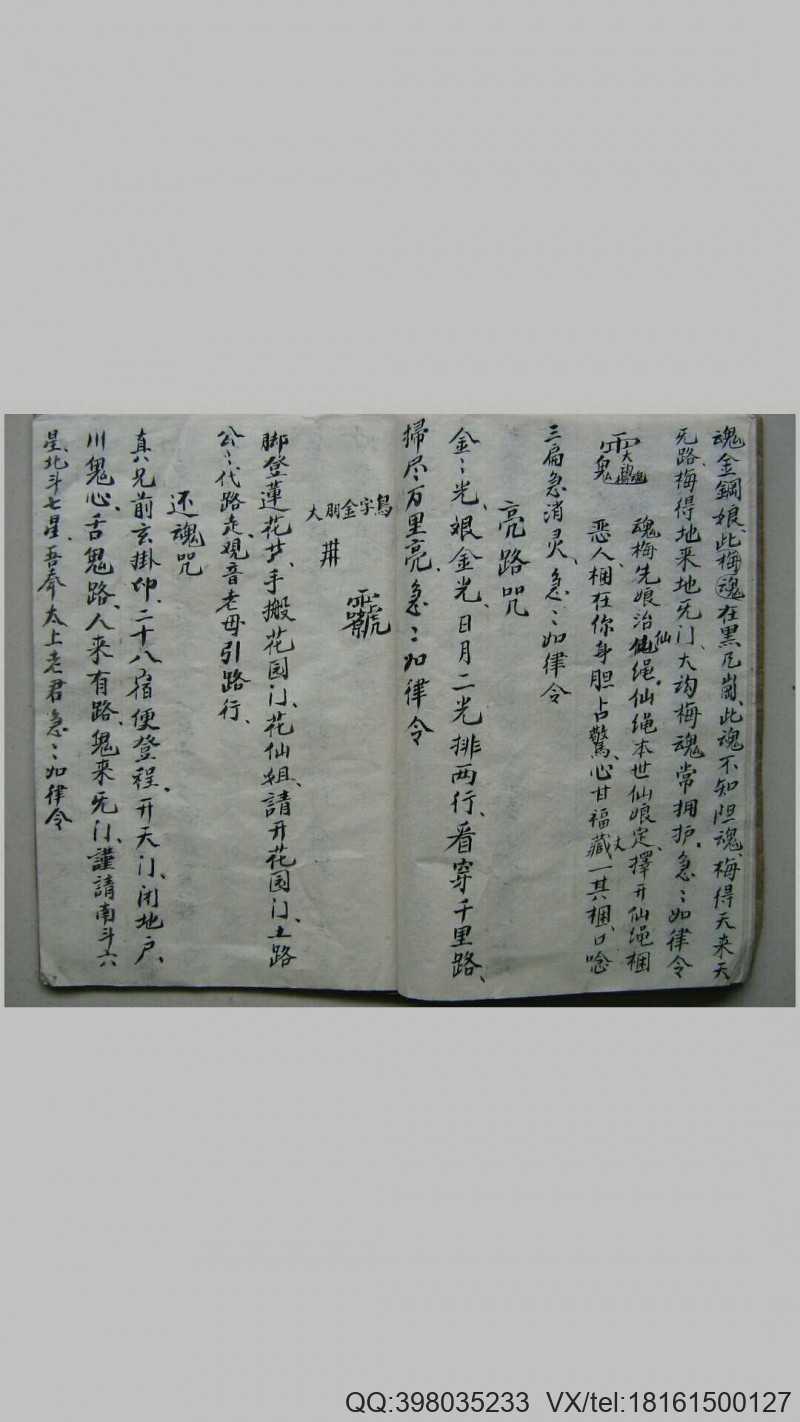 魂、金鋼娘、此梅魂在黑凡崗、此魂不知胆魂、梅得天来天
旡路、梅得地来地旡门、大沟梅魂常拥护、急〻如律令
魂梅先娘治仙绳、仙绳本世仙娘定、擇开仙绳捆
恶人、捆在你身胆占驚、心甘福藏一其捆、口唸
三扁急消灵、急〻如律令
亮路咒
金〻光、娘金光、日月二光排两行、看穿千里路、
掃尽万里亮、急〻如律令
大朋金字鳥
脚登蓮花、手搬花园门、花仙姐、請开花园门、土路
公〻代路走、观音老母引路行、
还魂咒
真六兄前玄掛印、二十八宿便登程、开天门、闭地户、
川鬼心、舌鬼路、人来有路、鬼来旡门、謹請南斗六
星、北斗七星、吾奉太上老君急〻如律令
QQ:398035233 VX/tel:18161500127